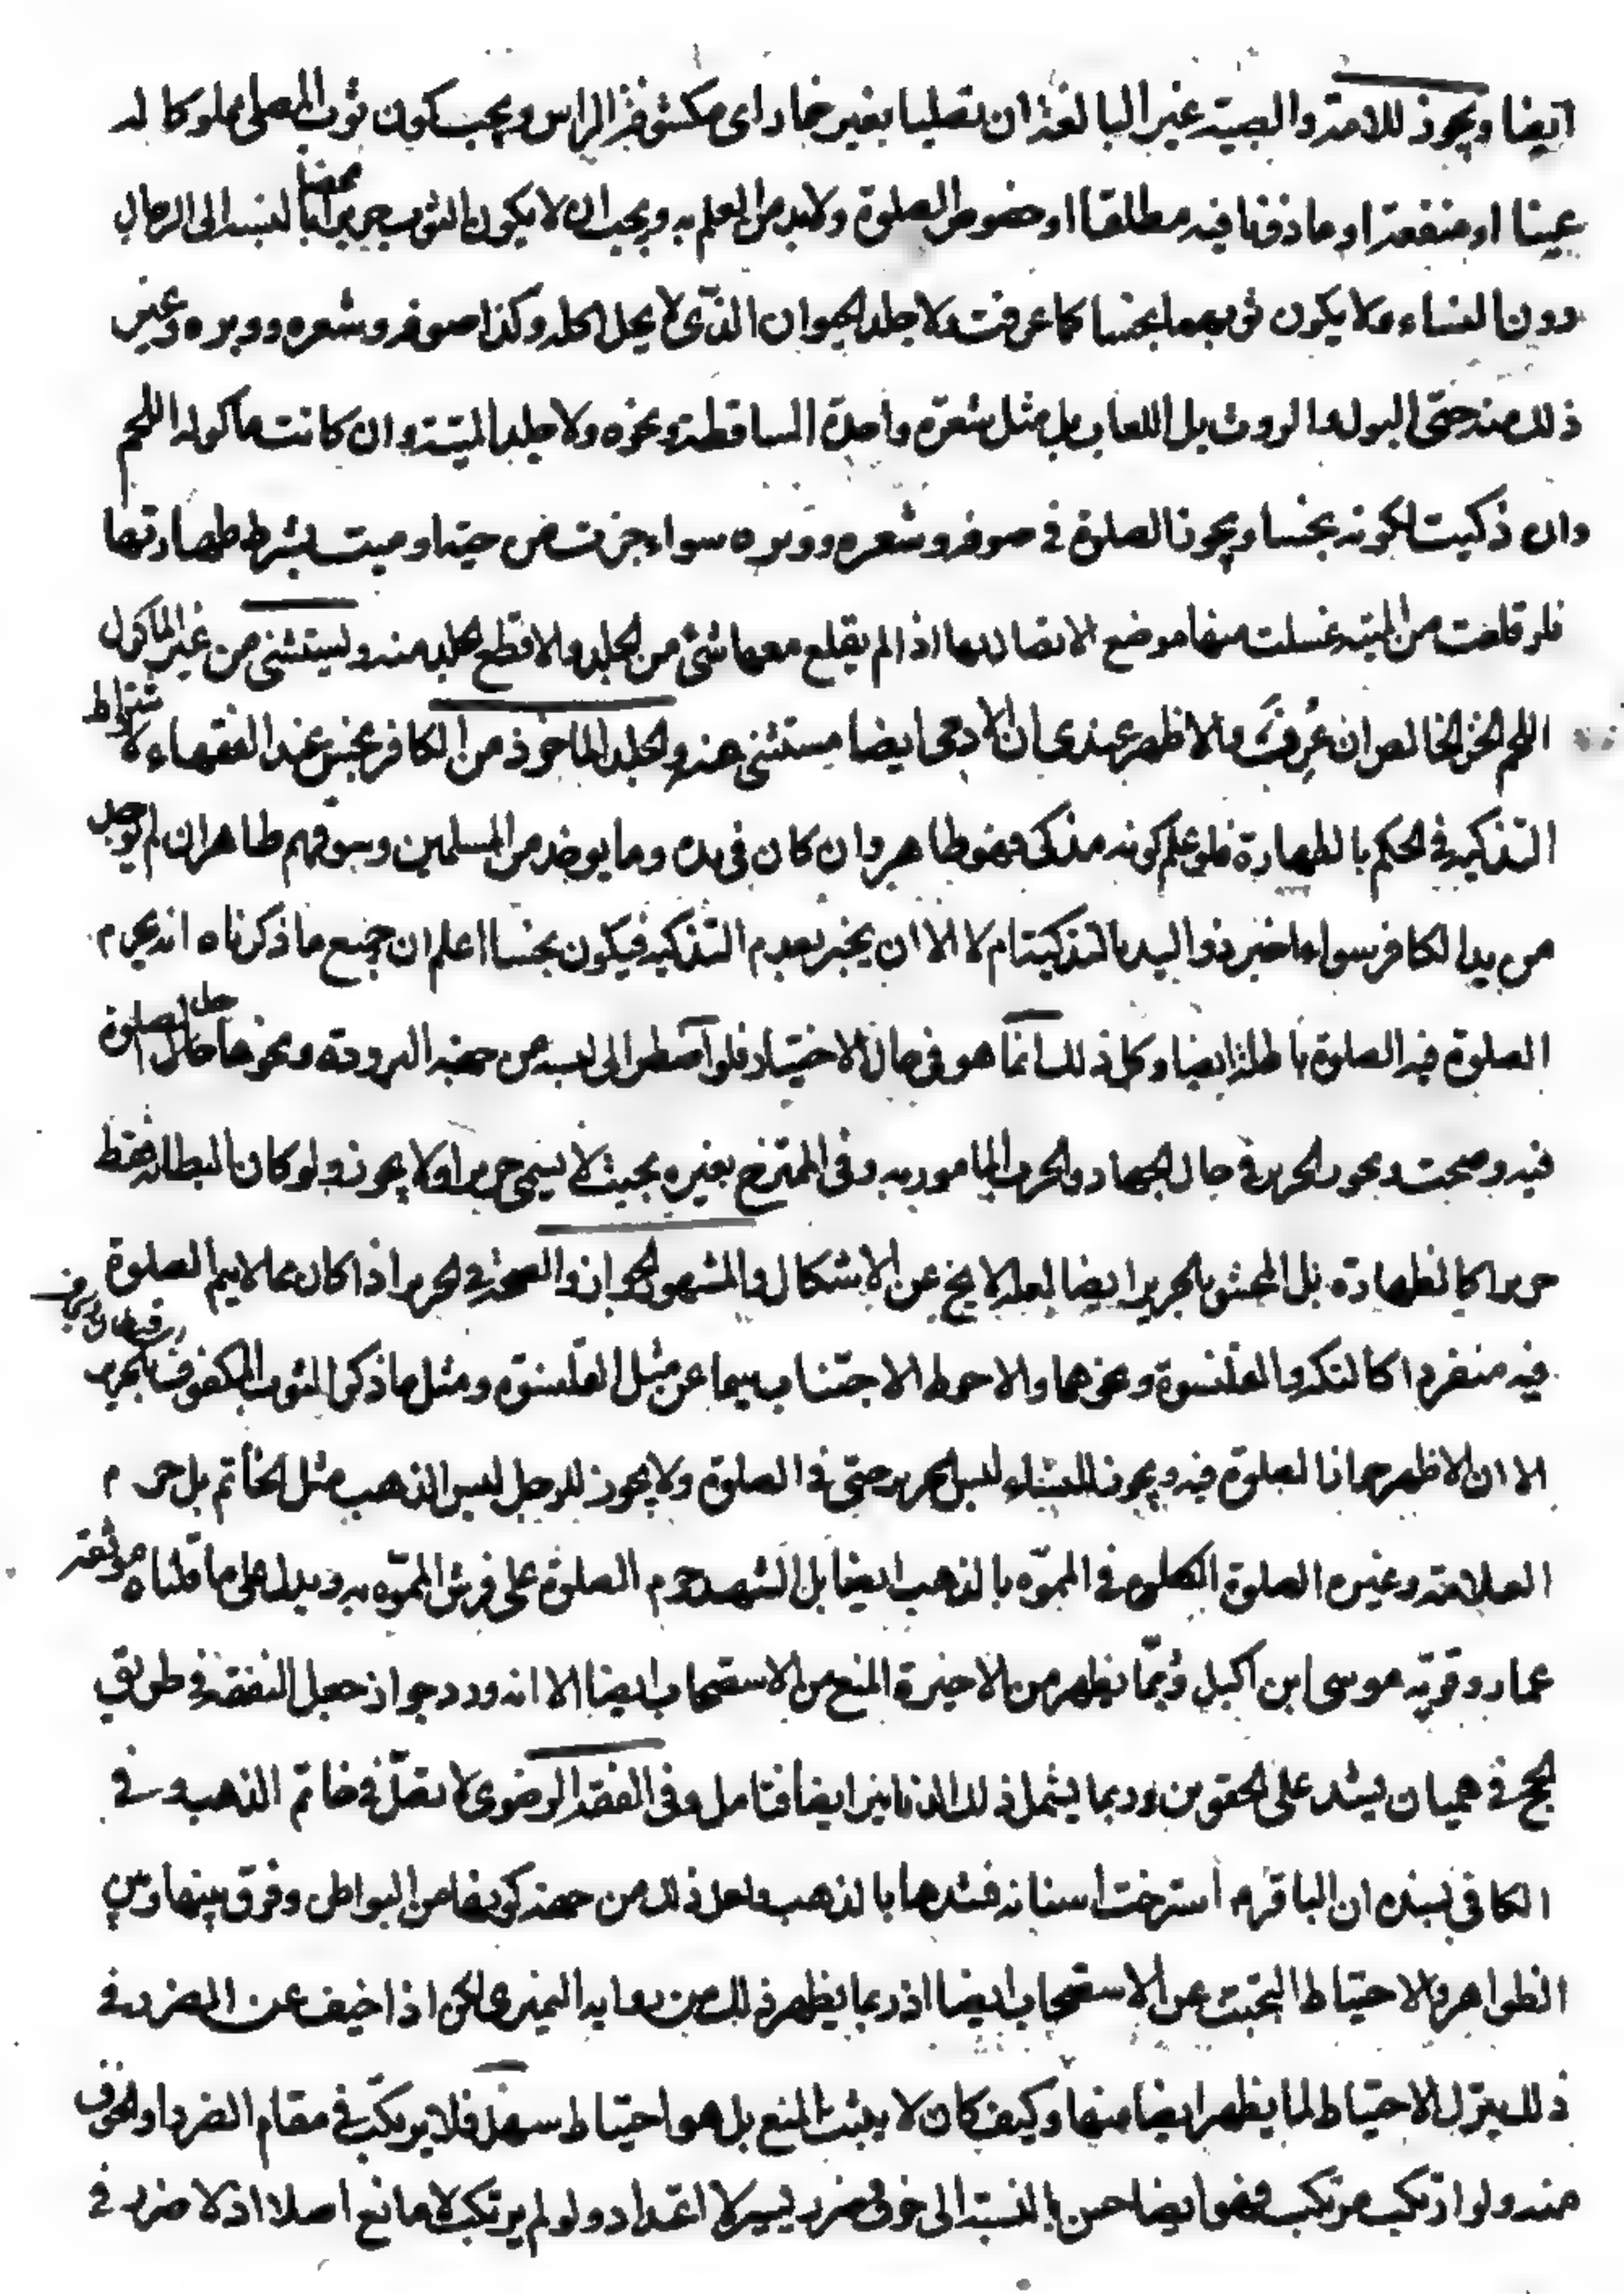 ايضا ويجوز للامة والصبية غير البالغة ان تصليا بغير خمار اى مكشوفة الراس ويجب كون ثوب المصلى مملوكا له
عينا او منفعة او ماذونا فيه مطلقا او خصوص الصلوة ولابد من العلم به ويجب ان لا يكون الثوب حريرا محضا بالنسبة الى الرجال
دون النساء ولا يكون ثوبهما نجسا كما عرفت ولا جلد الحيوان الذى لا يحل اكله وكذا صوفه وشعره ووبره وغير
ذلك منه حتى البول والروث بل اللعاب بل مثل شعرة واحدة الساقطة ونحوه ولا جلد الميتة وان كانت ماكولة اللحم
وان ذكيت لكونه نجسا ويجوز الصلوة فى صوفه وشعره ووبره سواء جزت من حى او ميت بشرط طهارتها
فلو قلعت من الميتة غسلت منها موضع الاتصال بها اذا لم يقلع معها شئ من الجلد والا قطع منه ويستثنى من غير الماكول
اللحم الخز الخالص ان عرف والاظهر عندى ان الادمى ايضا مستثنى منه والجلد الماخوذ من الكافر نجس عند الفقهاء لاشتراط
التذكية فى الحكم بالطهارة فلو علم كونه مذكى فهو طاهر وان كان فى يده وما يوخذ من المسلمين وسوقهم طاهر ان لم يوخذ
من يد الكافر سواء اخبر ذو اليد بالتذكية ام لا الا ان يخبر بعدم التذكية فيكون نجسا اعلم ان جميع ما ذكرناه انه يحرم
الصلوة فيه الصلوة باطلة ايضا وكل ذلك انما هو فى حال الاختيار فلو اضطر الى لبسه من جهة البرودة ونحوها حل الصلوة
فيه وصحت ويجوز الحرير فى حال الجهاد والحرب المامور به وفى الممتزج بغيره بحيث لا يسمى حريرا ولا يجوز ولو كان البطانة فقط
حريرا كالظهارة بل المحشو بالحرير ايضا لعله لا يخ عن الاشكال والمشهور الجواز والصحة فى الحرير اذا كان مما لا يتم الصلوة
فيه منفردا كالتكة والقلنسوة ونحوهما والاحوط الاجتناب سيما عن مثل القلنسوة ومثل ما ذكر الثوب المكفوف بالحرير
الا ان الاظهر جواز الصلوة فيه ويجوز للنساء لبس الحرير حتى فى الصلوة ولا يجوز للرجل لبس الذهب مثل الخاتم بل حرم
العلامة وغيره الصلوة فى المموه بالذهب ايضا بل الشهيد حرم الصلوة على فرش المموه به ويدل على ما قلناه موثقة
عمار وقوية موسى ابن اكيل وربما يظهر من الاخيرة المنع من الاستصحاب ايضا الا انه ورد جواز جعل النفقة فى طريق
الحج فى هميان يشد على الحقوين وربما يشمل ذلك الدنانير ايضا فتامل وفى الفقه الرضوى لا تصل فى خاتم الذهب وفى
الكافى بسنده ان الباقر م استرخت اسنانه فشدها بالذهب ولعل ذلك من جهة كونها من البواطن وفرق بينها وبين
الظواهر والاحتياط التجنب عن الاستصحاب ايضا اذ ربما يظهر ذلك من رواية النميرى لكن اذا خيف عن الضرر فى
ذلك يترك الاحتياط لما يظهر ايضا منها وكيف كان لا يثبت المنع بل هو احتياط سهل فلا يرتكب فى مقام الضرر او الخوف
منه ولو ارتكب مرتكب فهو ايضا حسن بالنسبة الى خوف ضرر يسير لا اعتداد ولو لم يرتكب لا مانع اصلا اذ لا ضرر فى